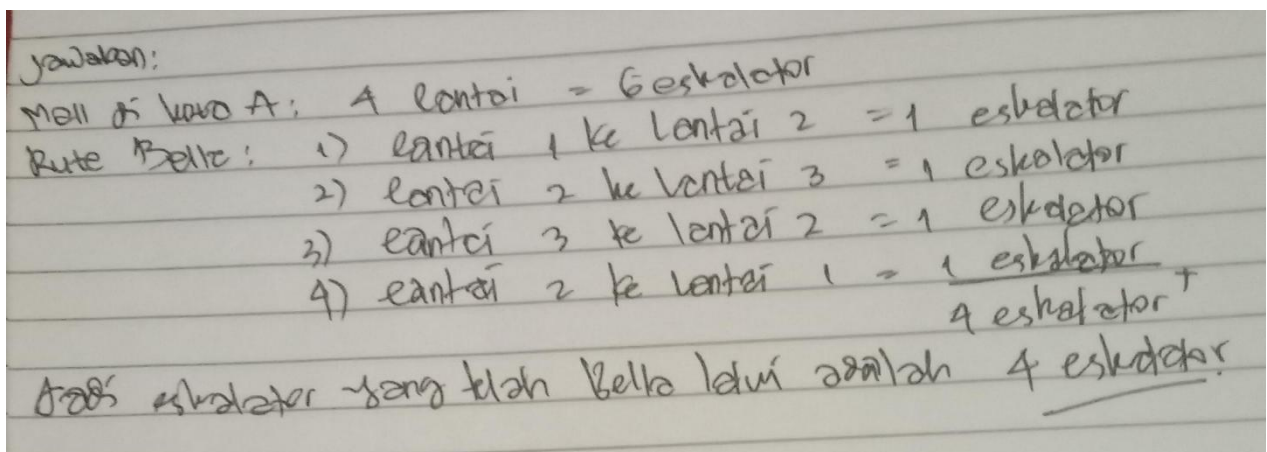 Jawaban:
Mall di kota A: 4 lantai = 6 eskalator
Rute Bella: 1) lantai 1 ke lantai 2 = 1 eskalator
2) lantai 2 ke lantai 3 = 1 eskalator
3) lantai 3 ke lantai 2 = 1 eskalator
4) lantai 2 ke lantai 1 = 1 eskalator +
4 eskalator
Jadi eskalator yang telah Bella lalui adalah 4 eskalator.